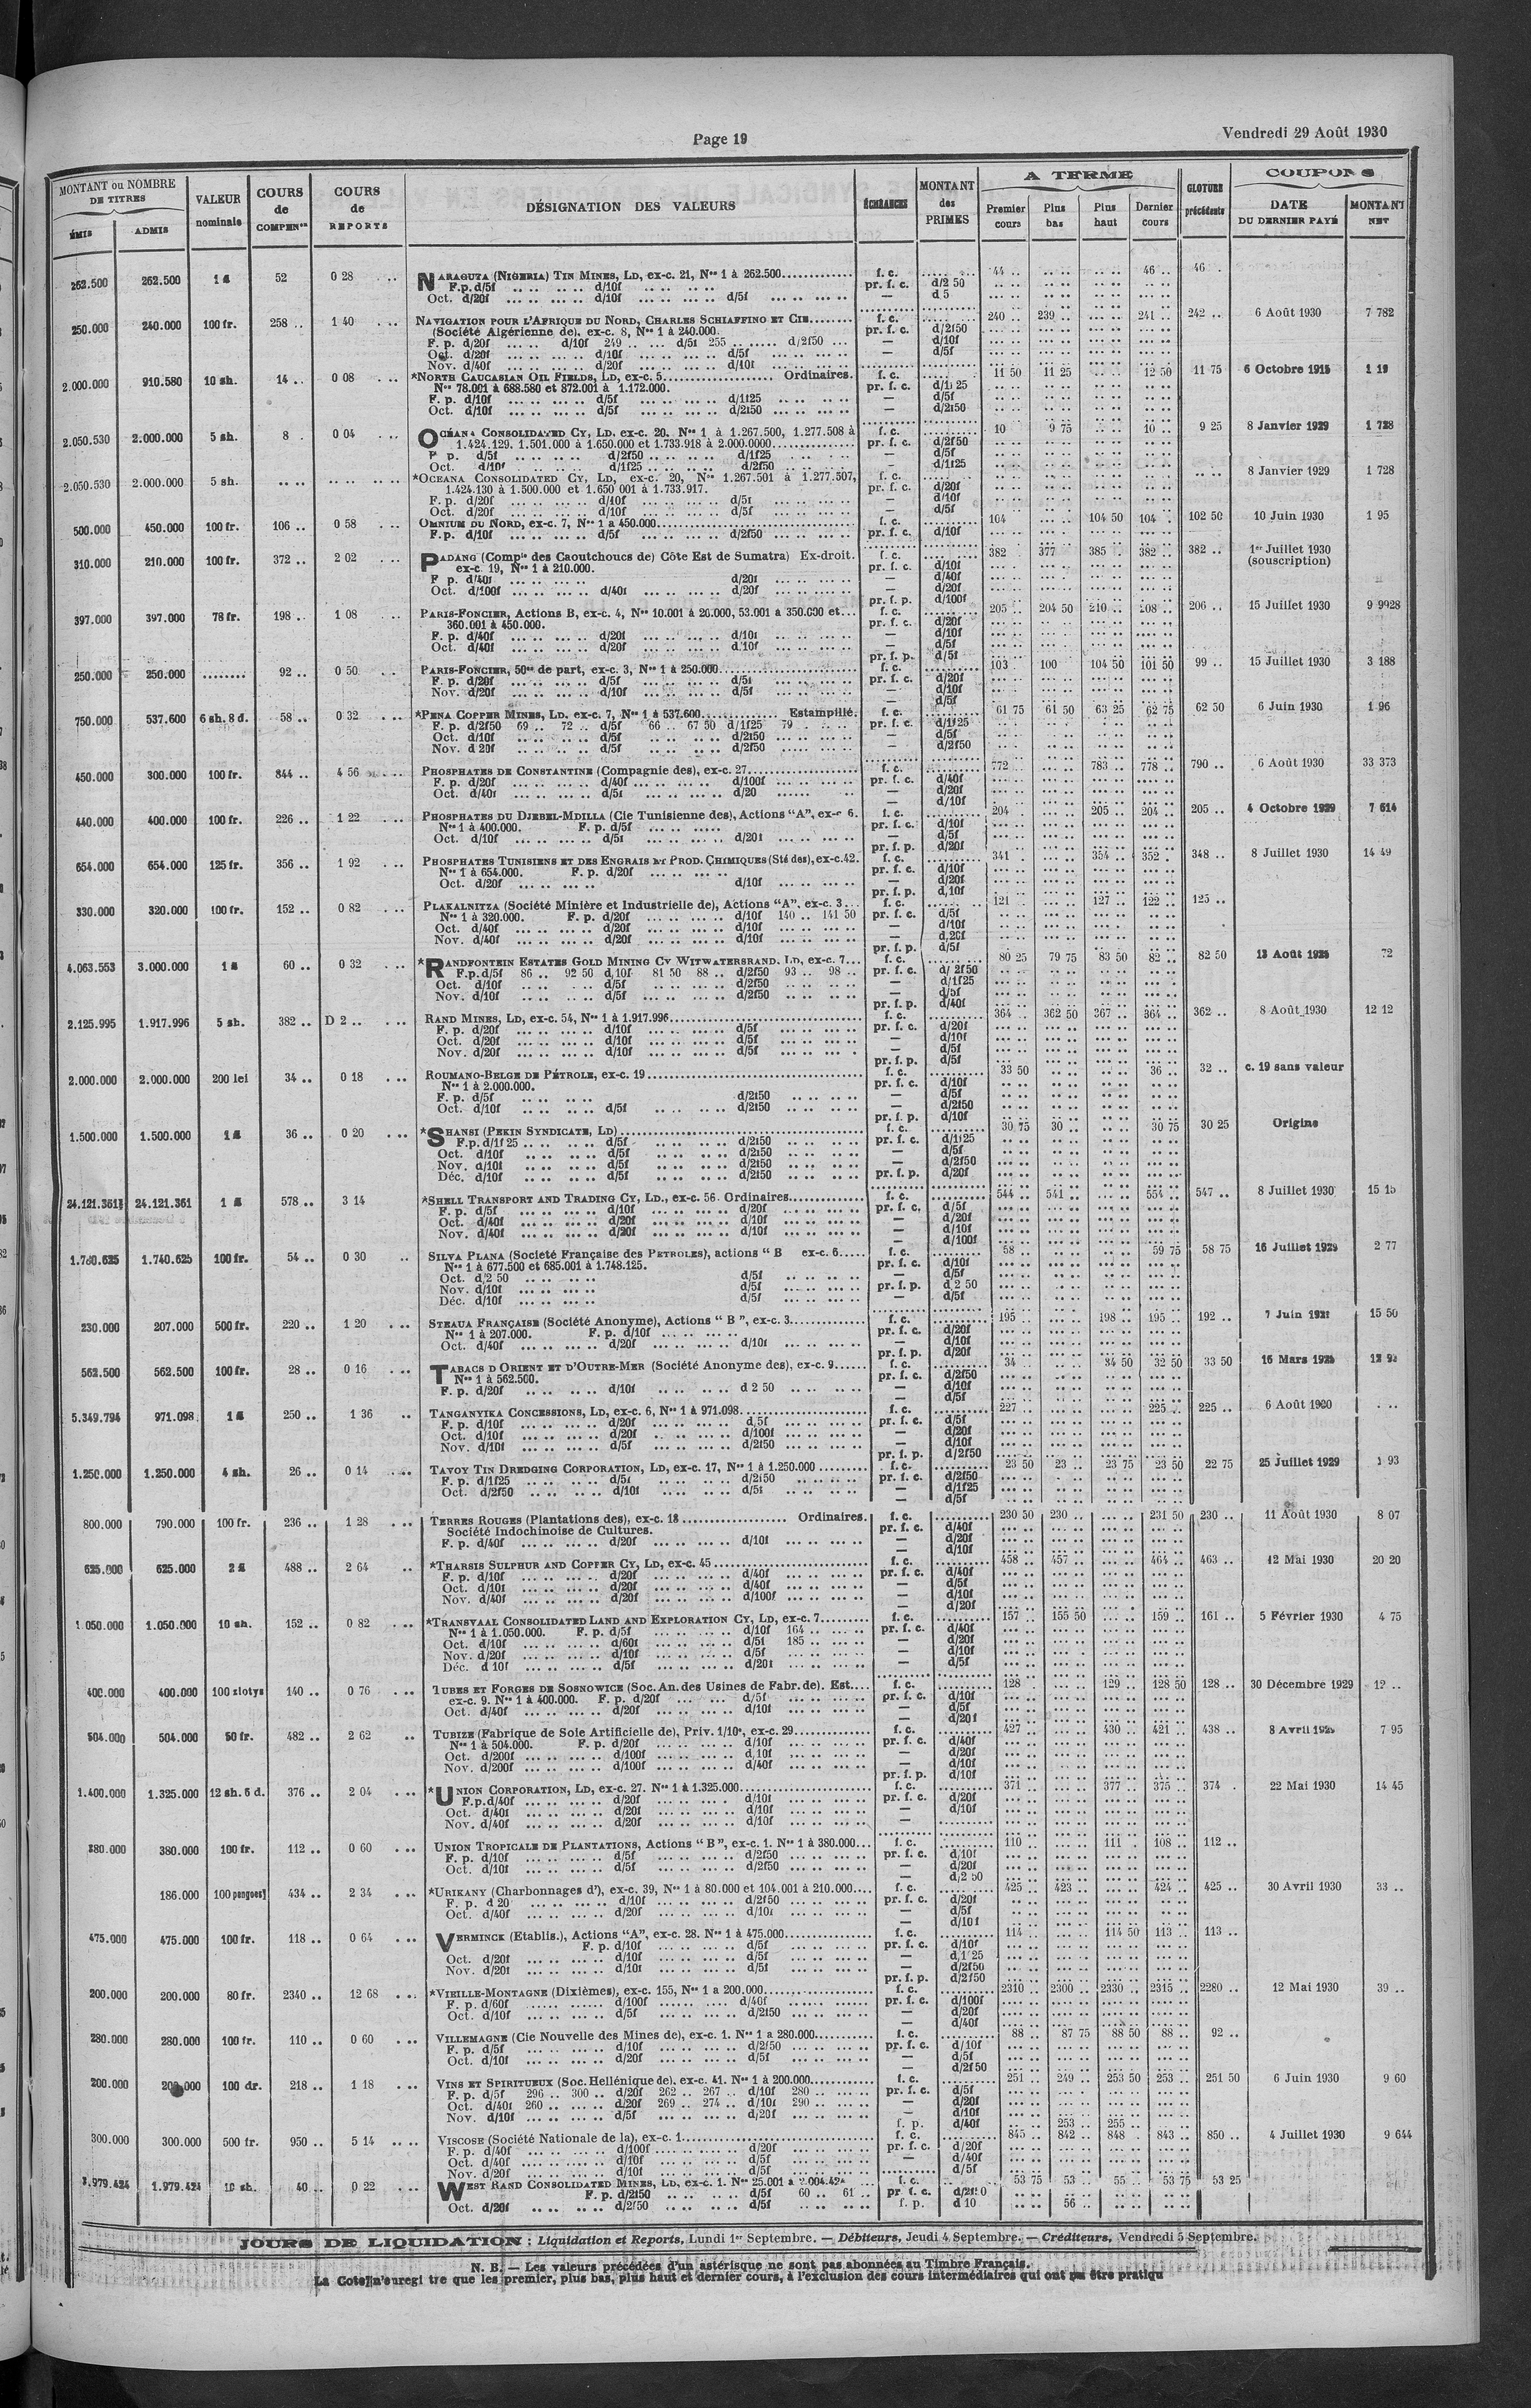 Page 19
Vendredi 29 Août 1930
MONTANT ou NOMBRE DE TITRES
ÉMIS
ADMIS
VALEUR nominale
COURS de COMPENon
COURS de REPORTS
DÉSIGNATION DES VALEURS
ÉCHÉANCES
MONTANT des PRIMES
A TERME
Premier cours
Plus bas
Plus haut
Dernier cours
CLOTURE précédente
COUPONS
DATE DU DERNIER PAYÉ
MONTANT NET
262.500 262.500 1 £ 52 0 28 NARAGUTA (NIGERIA) TIN MINES, LD, ex-c. 21, Nos 1 à 262.500 f. c. 44 .. 46 .. 46 .
F.p. d/5f d/10f pr. f. c. d/2 50
Oct. d/20f d/10f d/5f — d 5
250.000 240.000 100 fr. 258 .. 1 40 NAVIGATION POUR L'AFRIQUE DU NORD, CHARLES SCHIAFFINO ET CIE f. c. 240 .. 239 .. 241 .. 242 .. 6 Août 1930 7 782
(Société Algérienne de). ex-c. 8, Nos 1 à 240.000. pr. f. c. d/2f50
F. p. d/20f d/10f 249 .. d/5f 255 .. d/2f50 — d/10f
Oct. d/20f d/10f d/5f — d/5f
Nov. d/40f d/20f d/10f
2.000.000 910.580 10 sh. 14 .. 0 08 *NORTH CAUCASIAN OIL FIELDS, LD, ex-c. 5 Ordinaires. f. c. 11 50 11 25 12 50 11 75 6 Octobre 1915 1 19
Nos 78.001 à 688.580 et 872.001 à 1.172.000. pr. f. c. d/1f25
F. p. d/10f d/5f d/1f25 — d/5f
Oct. d/10f d/5f d/2f50 — d/2f50
2.050.530 2.000.000 5 sh. 8 . 0 04 OCÉANA CONSOLIDATED CY, LD. ex-c. 20. Nos 1 à 1.267.500, 1.277.508 à f. c. 10 9 75 10 .. 9 25 8 Janvier 1929 1 728
1.424.129. 1.501.000 à 1.650.000 et 1.733.918 à 2.000.0000 pr. f. c. d/2f50
F p. d/5f d/2f50 d/1f25 — d/5f
Oct. d/10f d/1f25 d/2f50 — d/1f25
2.050.530 2.000.000 5 sh. *OCEANA CONSOLIDATED CY, LD, ex-c. 20, Nos 1.267.501 à 1.277.507, f. c. 8 Janvier 1929 1 728
1.424.130 à 1.500.000 et 1.650 001 à 1.733.917. pr. f. c. d/20f
F. p. d/20f d/10f d/5f — d/10f
Oct. d/20f d/10f d/5f — d/5f
500.000 450.000 100 fr. 106 .. 0 58 OMNIUM DU NORD, ex-c. 7, Nos 1 a 450.000 f. c. 104 104 50 104 . 102 50 10 Juin 1930 1 95
F. p. d/10f d/5f d/2f50 pr. f. c. d/10f
310.000 210.000 100 fr. 372 .. 2 02 PADANG (Compie des Caoutchoucs de) Côte Est de Sumatra) Ex-droit. f. c. 382 377 385 .. 382 .. 382 .. 1er Juillet 1930
ex-c. 19, Nos 1 à 210.000. pr. f. c. d/10f (souscription)
F p. d/40f d/20f — d/40f
Oct. d/100f d/40f d/20f — d/20f
pr. f. p. d/100f
397.000 397.000 78 fr. 198 .. 1 08 PARIS-FONCIER, Actions B, ex-c. 4, Nos 10.001 à 20.000, 53.001 a 350.000 et f. c. 205 .. 204 50 210 .. 208 .. 206 .. 15 Juillet 1930 9 9928
360.001 à 450.000. pr. f. c. d/20f
F. p. d/40f d/20f d/10f — d/10f
Oct. d/40f d/20f d/10f — d/5f
pr. f. p. d/5f
250.000 250.000 92 .. 0 50 PARIS-FONCIER, 50es de part, ex-c. 3, Nos 1 à 250.000 f. c. 103 100 104 50 101 50 99 .. 15 Juillet 1930 3 188
F. p. d/20f d/5f d/5f pr. f. c. d/20f
Nov. d/20f d/10f d/5f — d/10f
— d/5f
750.000 537.600 6 sh. 8 d. 58 .. 0 32 *PENA COPPER MINES, LD. ex-c. 7, Nos 1 à 537.600 Estampillé. f. c. 61 75 61 50 63 25 62 75 62 50 6 Juin 1930 1 96
F. p. d/2f50 69 .. 72 .. d/5f 66 .. 67 50 d/1f25 79 pr. f. c. d/1f25
Oct. d/10f d/5f d/2f50 — d/5f
Nov. d 20f d/5f d/2f50 — d/2f50
450.000 300.000 100 fr. 844 .. 4 56 PHOSPHATES DE CONSTANTINE (Compagnie des), ex-c. 27 f. c. 772 783 .. 778 .. 790 .. 6 Août 1930 33 373
F. p. d/20f d/40f d/100f pr. f. c. d/40f
Oct. d/40f d/5f d/20 — d/20f
— d/10f
440.000 400.000 100 fr. 226 .. 1 22 PHOSPHATES DU DJEBEL-MDILLA (Cie Tunisienne des), Actions “A”, ex-c 6. f. c. 204 205 .. 204 .. 205 .. 4 Octobre 1929 7 614
Nos 1 à 400.000. F. p. d/5f pr. f. c. d/10f
Oct. d/10f d/5f d/20f — d/5f
pr. f. p. d/20f
654.000 654.000 125 fr. 356 .. 1 92 PHOSPHATES TUNISIENS ET DES ENGRAIS ET PROD. CHIMIQUES (Sté des), ex-c.42. f. c. 341 354 .. 352 . 348 .. 8 Juillet 1930 14 49
Nos 1 à 654.000. F. p. d/20f pr. f. c. d/10f
Oct. d/20f d/10f — d/20f
pr. f. p. d/10f
330.000 320.000 100 fr. 152 .. 0 82 PLAKALNITZA (Société Minière et Industrielle de), Actions “A”, ex-c. 3 f. c. 121 127 .. 122 .. 125 ..
Nos 1 à 320.000. F. p. d/20f d/10f 140 .. 141 50 pr. f. c. d/5f
Oct. d/40f d/20f d/10f — d/10f
Nov. d/40f d/20f d/10f — d.20f
pr. f. p. d/5f
4.063.553 3.000.000 1 £ 60 .. 0 32 *RANDFONTEIN ESTATES GOLD MINING CY WITWATERSRAND. LD, ex-c. 7 f. c. 80 25 79 75 83 50 82 .. 82 50 13 Août 72
F.p. d/5f 86 .. 92 50 d/10f 81 50 88 .. d/2f50 93 .. 98 .. pr. f. c. d/2f50
Oct. d/10f d/5f d/2f50 — d/1f25
Nov. d/10f d/5f d/2f50 — d/5f
pr. f. p. d/40f
2.125.995 1.917.996 5 sh. 382 .. D 2 .. RAND MINES, LD, ex-c. 54, Nos 1 à 1.917.996 f. c. 364 .. 362 50 367 .. 364 .. 362 .. 8 Août 1930 12 12
F. p. d/20f d/10f d/5f pr. f. c. d/20f
Oct. d/20f d/10f d/5f — d/10f
Nov. d/20f d/10f d/5f — d/5f
pr. f. p. d/5f
2.000.000 2.000.000 200 lei 34 .. 0 18 ROUMANO-BELGE DE PÉTROLE, ex-c. 19 f. c. 33 50 36 .. 32 .. c. 19 sans valeur
Nos 1 à 2.000.000. pr. f. c. d/10f
F. p. d/5f d/2f50 — d/5f
Oct. d/10f d/5f d/2f50 — d/2f50
pr. f. p. d/10f
1.500.000 1.500.000 1 £ 36 .. 0 20 *SHANSI (PEKIN SYNDICATE, LD) f. c. 30 75 30 .. 30 75 30 25 Origine
F.p. d/1f25 d/5f d/2f50 pr. f. c. d/1f25
Oct. d/10f d/5f d/2f50 — d/5f
Nov. d/10f d/5f d/2f50 — d/2f50
Déc. d/10f d/5f d/2f50 pr. f. p. d/20f
24.121.361½ 24.121.361 1 £ 578 .. 3 14 *SHELL TRANSPORT AND TRADING CY, LD., ex-c. 56. Ordinaires f. c. 544 .. 541 .. 554 .. 547 .. 8 Juillet 1930 15 15
F. p. d/5f d/10f d/20f pr. f. c. d/5f
Oct. d/40f d/20f d/10f — d/20f
Nov. d/40f d/20f d/10f — d/10f
— d/100f
1.740.625 1.740.625 100 fr. 54 .. 0 30 SILVA PLANA (Societé Française des PETROLES), actions “ B ex-c. 6 f. c. 58 .. 59 75 58 75 16 Juillet 1929 2 77
Nos 1 à 677.500 et 685.001 à 1.748.125. pr. f. c. d/10f
Oct. d/2 50 d/5f — d/5f
Nov. d/10f d/5f pr. f. p. d.2 50
Déc. d/10f d/5f — d/5f
230.000 207.000 500 fr. 220 .. 1 20 STEAUA FRANÇAISE (Société Anonyme), Actions “ B ”, ex-c. 3 f. c. 195 198 .. 195 .. 192 .. 7 Juin 15 50
Nos 1 à 207.000. F. p. d/10f pr. f. c. d/20f
Oct. d/40f d/20f d/10f — d/10f
pr. f. p. d/20f
562.500 562.500 100 fr. 28 .. 0 16 TABACS D ORIENT ET D'OUTRE-MER (Société Anonyme des), ex-c. 9 f. c. 34 34 50 32 50 33 50 16 Mars
Nos 1 à 562.500. pr. f. c. d/2f50
F. p. d/20f d/10f d 2 50 — d/10f
— d/5f
5.349.794 971.098 1 £ 250 .. 1 36 TANGANYIKA CONCESSIONS, LD, ex-c. 6, Nos 1 à 971.098 f. c. 227 225 .. 225 .. 6 Août
F. p. d/10f d/20f d.5f pr. f. c. d/5f
Oct. d/10f d/20f d/100f — d/20f
Nov. d/10f d/5f d/2f50 — d/10f
pr. f. p. d/2f50
1.250.000 1.250.000 4 sh. 26 .. 0 14 TAVOY TIN DREDGING CORPORATION, LD, ex-c. 17, Nos 1 à 1.250.000 f. c. 23 50 23 .. 23 75 23 50 22 75 25 Juillet 1929 1 93
F. p. d/1f25 d/5f d/2f50 pr. f. c. d/2f50
Oct. d/2f50 d/10f d/5f — d/1f25
— d/5f
800.000 790.000 100 fr. 236 .. 1 28 TERRES ROUGES (Plantations des), ex-c. 18 Ordinaires. f. c. 230 50 230 .. 231 50 230 .. 11 Août 1930 8 07
Société Indochinoise de Cultures. pr. f. c. d/40f
F. p. d/40f d/20f d/10f — d/20f
— d/10f
625.000 625.000 2 £ 488 .. 2 64 *THARSIS SULPHUR AND COPPER CY, LD, ex-c. 45 f. c. 458 .. 457 .. 464 .. 463 .. 12 Mai 1930 20 20
F. p. d/10f d/20f d/40f pr. f. c. d/40f
Oct. d/10f d/20f d/40f — d/5f
Nov. d/40f d/20f d/100f — d/10f
— d/20f
1 050.000 1.050.000 10 sh. 152 .. 0 82 *TRANSVAAL CONSOLIDATED LAND AND EXPLORATION CY, LD, ex-c. 7 f. c. 157 .. 155 50 159 .. 161 .. 5 Février 1930 4 75
Nos 1 à 1.050.000. F. p. d/5f d/10f 164 .. pr. f. c. d/40f
Oct. d/10f d/60f d/5f 185 .. — d/20f
Nov. d/20f d/10f d/5f — d/10f
Déc. d 10f d/5f d/20f — d/5f
400.000 400.000 100 zlotys 140 .. 0 76 TUBES ET FORGES DE SOSNOWICE (Soc. An. des Usines de Fabr. de). Est. f. c. 128 129 .. 128 50 128 .. 30 Décembre 1929 12 ..
ex-c. 9. Nos 1 à 400.000. F. p. d/20f d/5f pr. f. c. d/10f
Oct. d/40f d/20f d/10f — d/5f
— d/20f
504.000 504.000 50 fr. 482 .. 2 62 TUBIZE (Fabrique de Soie Artificielle de), Priv. 1/10e, ex-c. 29 f. c. 427 430 .. 421 .. 438 .. 8 Avril 7 95
Nos 1 à 504.000. F. p. d/20f d/10f pr. f. c. d/40f
Oct. d/200f d/100f d.10f — d/20f
Nov. d/200f d/100f d/40f — d/10f
pr. f. p. d/10f
1.400.000 1.325.000 12 sh. 6 d. 376 .. 2 04 *UNION CORPORATION, LD, ex-c. 27. Nos 1 à 1.325.000 f. c. 371 377 .. 375 .. 374 . 22 Mai 1930 14 45
F.p. d/40f d/20f d/10f pr. f. c. d/20f
Oct. d/40f d/20f d/10f — d/10f
Nov. d/40f d/20f d/10f —
380.000 380.000 100 fr. 112 .. 0 60 UNION TROPICALE DE PLANTATIONS, Actions “ B ”, ex-c. 1. Nos 1 à 380.000 f. c. 110 111 . 108 .. 112 ..
F. p. d/10f d/5f d/2f50 pr. f. c. d/10f
Oct. d/10f d/5f d/2f50 — d/20f
— d/2 50
186.000 100 pengoes 434 .. 2 34 *URIKANY (Charbonnages d'), ex-c. 39, Nos 1 à 80.000 et 104.001 à 210.000 f. c. 425 .. 423 .. 424 .. 425 .. 30 Avril 1930 33 ..
F. p. d 20 d/10f d/2f50 pr. f. c. d/20f
Oct. d/40f d/20f d/10f — d/5f
— d/10f
475.000 475.000 100 fr. 118 .. 0 64 VERMINCK (Etablis.), Actions “A”, ex-c. 28. Nos 1 à 475.000 f. c. 114 .. 114 50 113 .. 113 ..
F. p. d/10f d/5f pr. f. c. d/10f
Oct. d/20f d/10f d/5f — d.1f25
Nov. d/20f d/10f d/5f — d/2f50
pr. f. p. d/2f50
200.000 200.000 80 fr. 2340 .. 12 68 *VIEILLE-MONTAGNE (Dixièmes), ex-c. 155, Nos 1 a 200.000 f. c. 2310 .. 2300 .. 2330 .. 2315 .. 2280 .. 12 Mai 1930 39 ..
F. p. d/60f d/100f d/40f pr. f. c. d/100f
Oct. d/10f d/5f d/2f50 — d/20f
— d/40f
280.000 280.000 100 fr. 110 .. 0 60 VILLEMAGNE (Cie Nouvelle des Mines de), ex-c. 1. Nos 1 a 280.000 f. c. 88 .. 87 75 88 50 88 .. 92 ..
F. p. d/5f d/10f d/2f50 pr. f. c. d/10f
Oct. d/10f d/20f d/5f — d/5f
— d/2f50
200.000 200.000 100 dr. 218 .. 1 18 VINS ET SPIRITUEUX (Soc. Hellénique de). ex-c. 41. Nos 1 à 200.000 f. c. 251 .. 249 .. 253 50 253 .. 251 50 6 Juin 1930 9 60
F. p. d/5f 296 .. 300 .. d/20f 262 .. 267 .. d/10f 280 .. pr. f. c. d/5f
Oct. d/40f 260 .. d/20f 269 .. 274 .. d/10f 290 .. — d/20f
Nov. d/10f d/5f d/20f — d/10f
f. p. d/40f 253 .. 255 ..
300.000 300.000 500 fr. 950 .. 5 14 VISCOSE (Société Nationale de la), ex-c. 1 f. c. 845 .. 842 .. 848 . 843 .. 850 .. 4 Juillet 1930 9 644
F. p. d/40f d/100f d/20f pr. f. c. d/20f
Oct. d/40f d/10f d/5f — d/40f
Nov. d/20f d/10f d/5f d/5f
1.979.424 1.979.424 10 sh. 40 .. 0 22 WEST RAND CONSOLIDATED MINES, LD, ex-c. 1. Nos 25.001 à 2.004.424 f. c. 53 75 53 .. 55 .. 53 75 53 25
F. p. d/2f50 d/5f 60 .. 61 .. pr. f. c. d/2f50
Oct. d/20f d/2f50 d/5f f. p. d 10 56 ..
JOURS DE LIQUIDATION : Liquidation et Reports, Lundi 1er Septembre. — Débiteurs, Jeudi 4 Septembre. — Créditeurs, Vendredi 5 Septembre.
N. B. — Les valeurs précédées d'un astérisque ne sont pas abonnées au Timbre Français.
La Cote n'euregi tre que les premier, plus bas, plus haut et dernier cours, à l'exclusion des cours intermédiaires qui ont pu être pratiqu